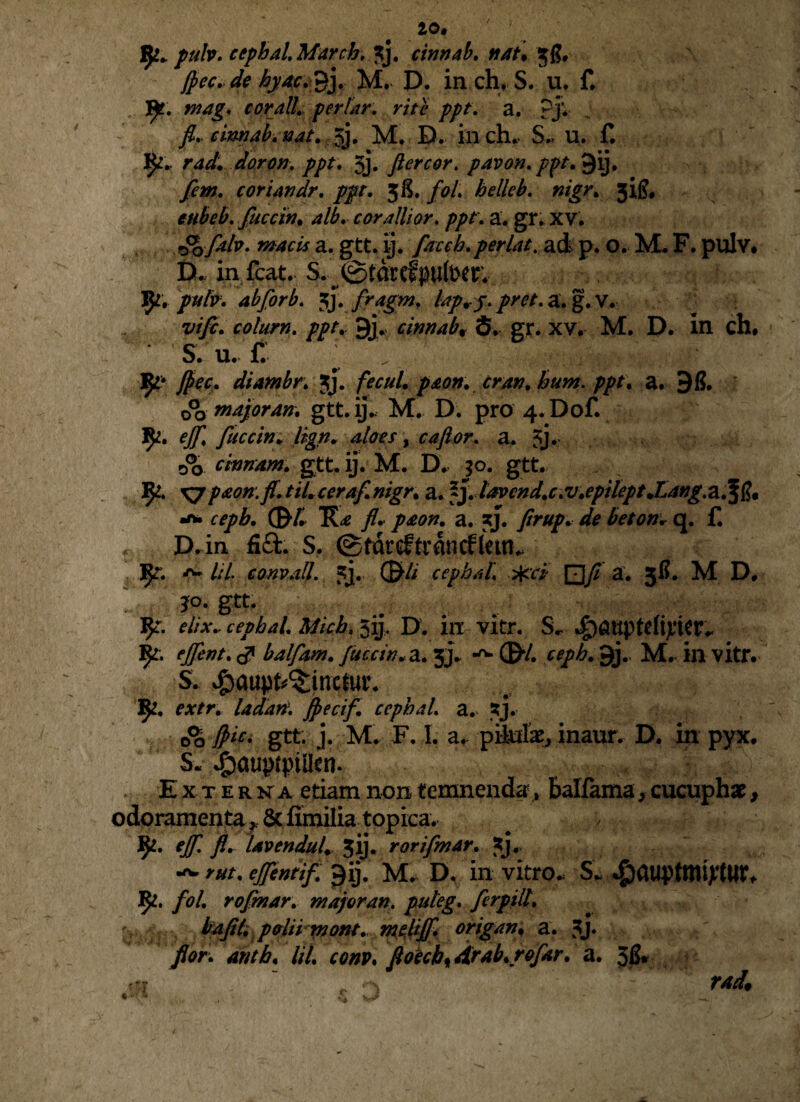 20.
℞. pulv. cephal. March. ʒj. cinnab. nat. ʒß.
ſpec. de hyac. ℈j. M. D. in ch. S. u. ſ.
℞. mag. corall. perlar. rite ppt. a. ℈j.
fl. cinnab. nat. ʒj. M. D. in ch. S. u. ſ.
℞. rad. doron. ppt. ʒj. ſtercor. pavon. ppt. ℈ij.
ſem. coriandr. ppt. ʒß. fol. helleb. nigr. ʒiß.
cubeb. ſuccin. alb. corallior. ppt. a. gr. xv.
o⁰o ſalv. macis a. gtt. ij. ſacch. perlat. ad p. o. M. F. pulv.
D. in ſcat. S. Starckpulver.
℞. pulv. abſorb. ʒj. fragm. lap. 5. pret. a. g. v.
viſc. colurn. ppt. ℈j. cinnab. ♁. gr. xv. M. D. in ch.
S. u. ſ.
℞. ſpec. diambr. ʒj. fecul. pæon. cran. hum. ppt. a. ℈ß.
o⁰o majoran. gtt. ij. M. D. pro 4. Doſ.
℞. eſſ. ſuccin. lign. aloes, caſtor. a. ʒj.
o⁰o cinnam. gtt. ij. M. D. 30. gtt.
℞. ▽ pæon. fl. til. ceraſ. nigr. a. ℥j. lavend. c. v. epilept. Lang. a. ℥ß.
ceph. li Ræ fl. pæon. a. ʒj. ſirup. de beton. q. ſ.
D. in fict. S. Starckträncklein.
℞. lil. convall. ʒj. li cephal. ✱ci □ſi a. ʒß. M D.
30. gtt.
℞. elix. cephal. Mich. ʒij. D. in vitr. S. Hauptelixier.
℞. eſſent. & balſam. ſuccin. a. ʒj. l. ceph. ℈j. M. in vitr.
S. Haupt⸗Tinctur.
℞. extr. ladan. ſpecif. cephal. a. ʒj.
o⁰o ſpic. gtt. j. M. F. l. a. pilulæ, inaur. D. in pyx.
S. Hauptpillen.
Externa etiam non temnenda, balſama, cucuphæ,
odoramenta, & ſimilia topica.
℞. eſſ. fl. lavendul. ʒij. roriſmar. ʒj.
rut. eſſentif. ℈ij. M. D. in vitro. S. Hauptmixtur.
℞. fol. roſmar. majoran. puleg. ſerpill.
baſil. polii mont. meliſſ. origan. a. ʒj.
flor. anth. lil. conv. ſtoech. Arab. roſar. a. ʒß.
rad.